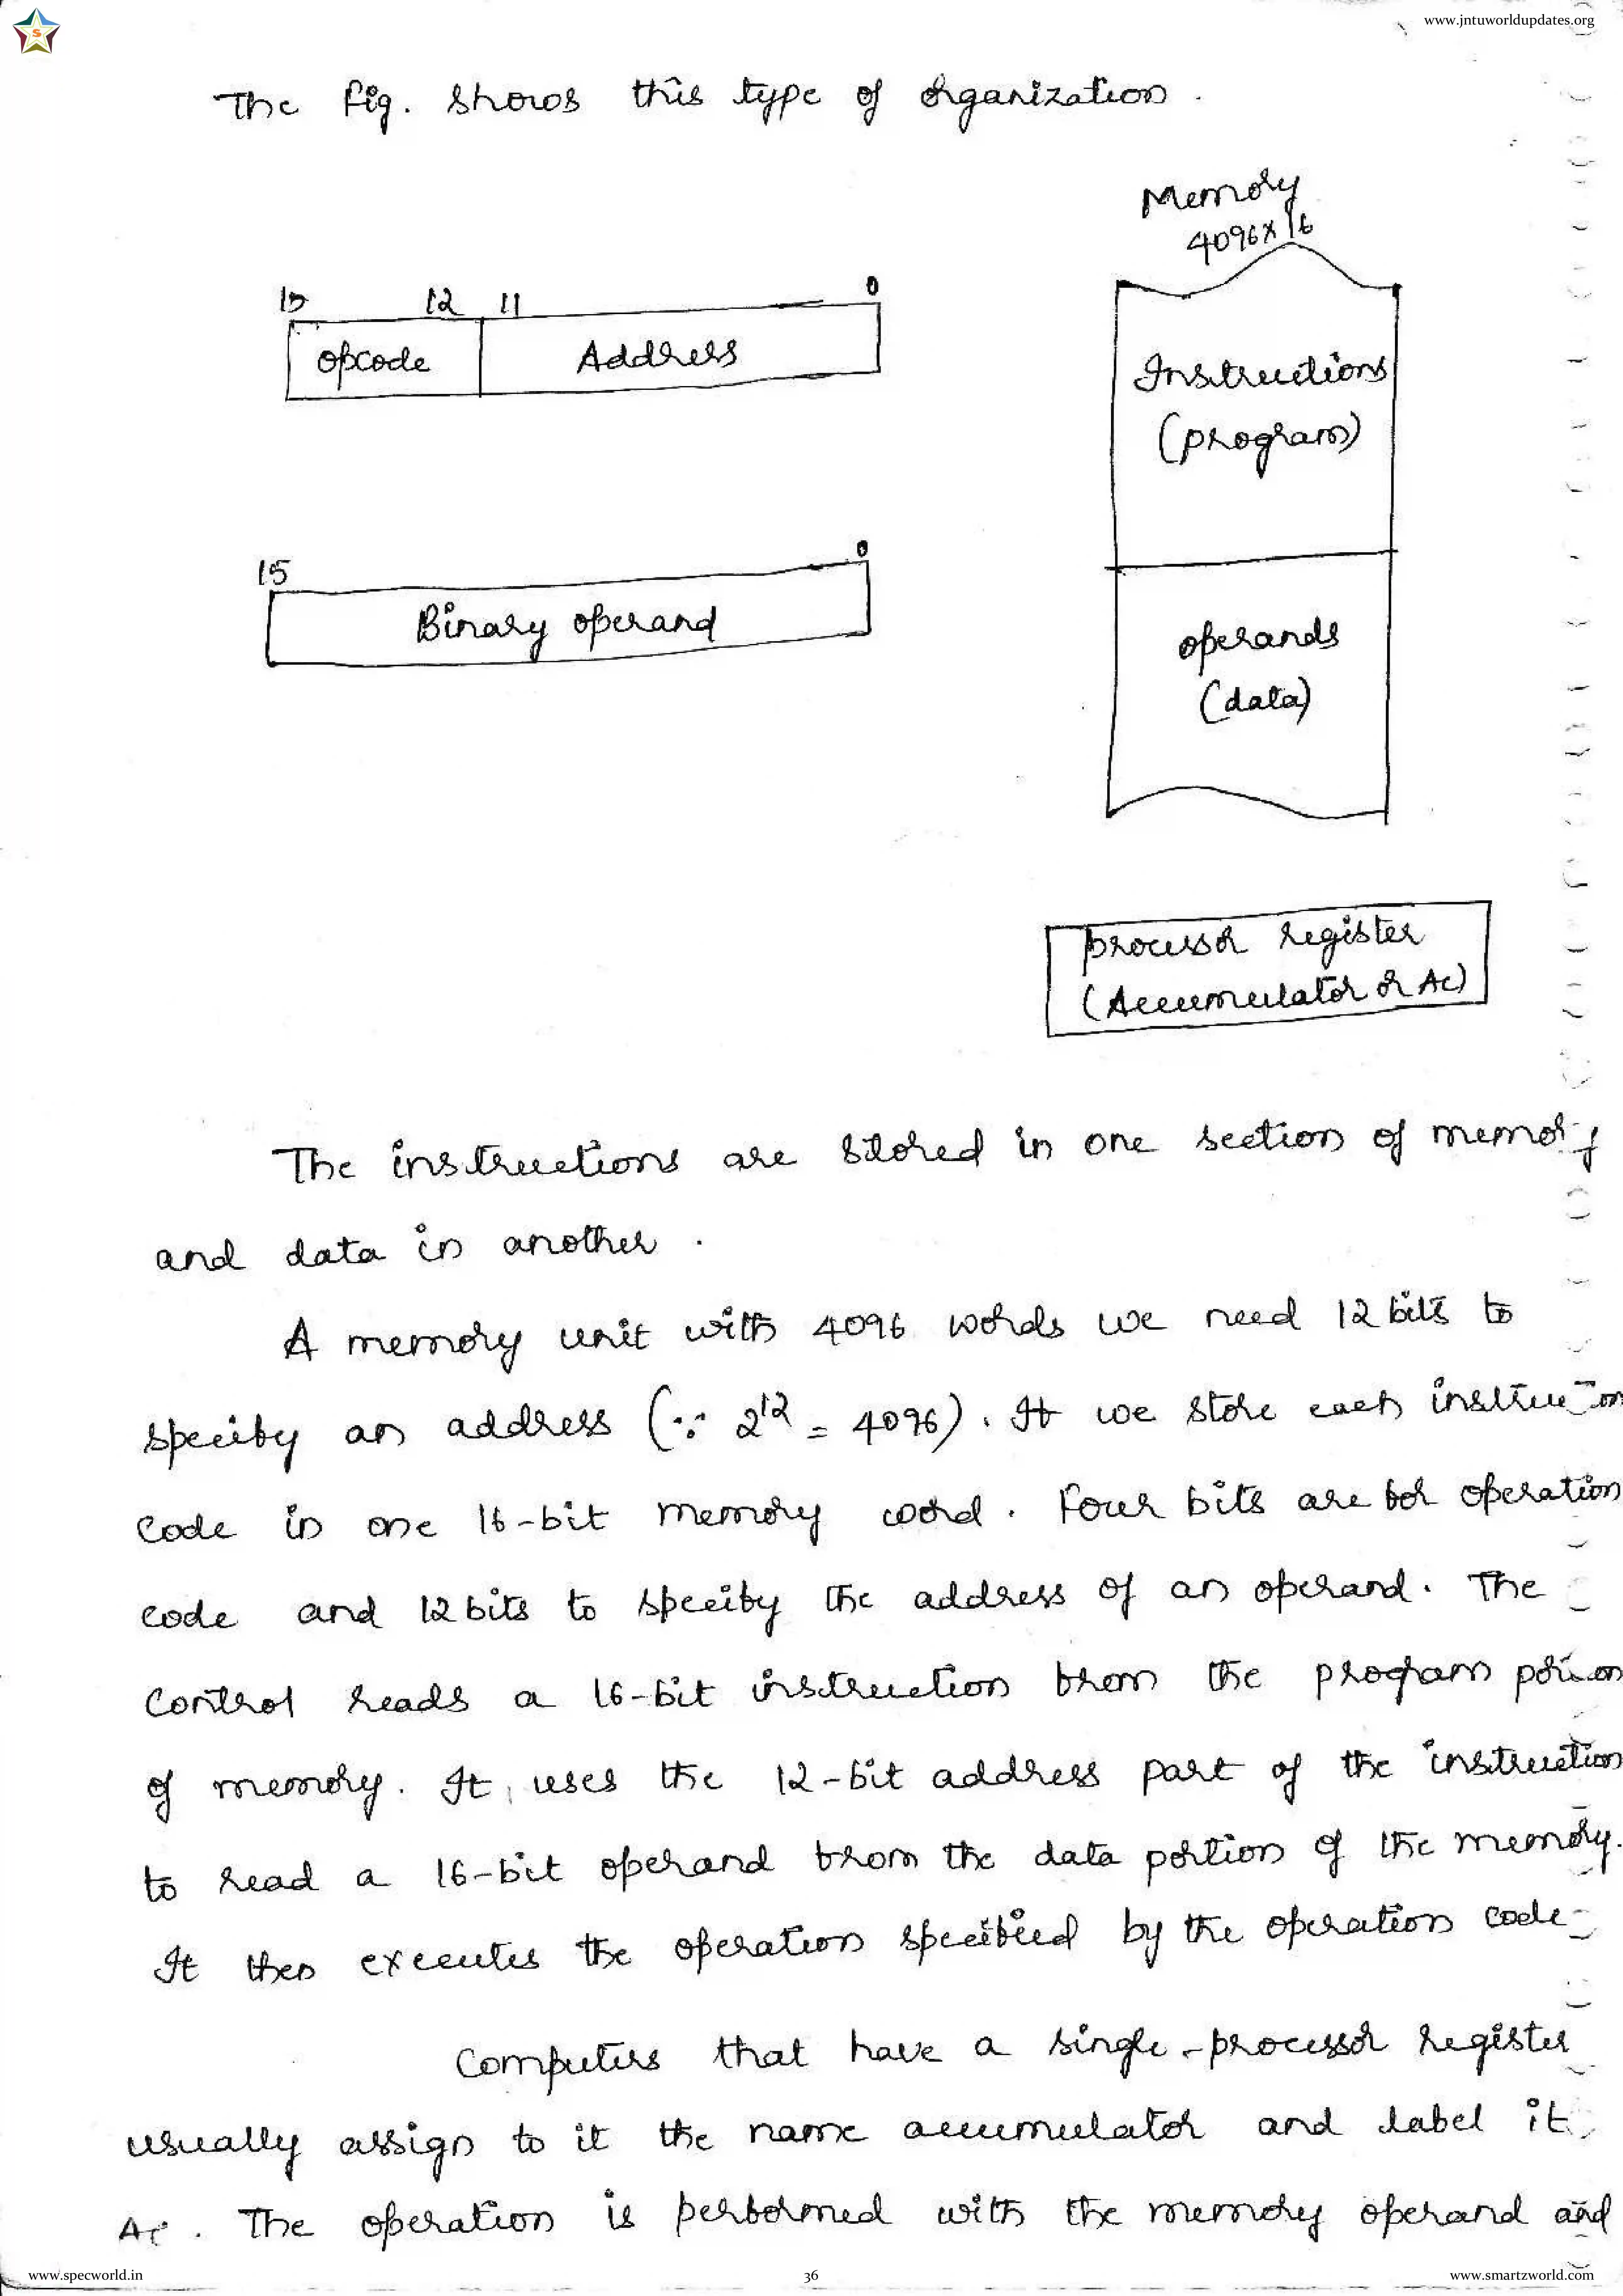 S
www.jntuworldupdates.org
The fig. shows this type of organization.
Memory
4096x16
15 12 11 0
opcode Address
Instructions
(program)
15 0
Binary operand
operands
(data)
processor register
(Accumulator or Ac)
The instructions are stored in one section of memory
and data in another.
A memory unit with 4096 words we need 12 bits to
specify an address (∵ 2^12 = 4096). If we store each instruction
code in one 16-bit memory word. Four bits are for operation
code and 12 bits to specify the address of an operand. The
control reads a 16-bit instruction from the program portion
of memory. It uses the 12-bit address part of the instruction
to read a 16-bit operand from the data portion of the memory.
It then executes the operation specified by the operation code
Computers that have a single-processor register
usually assign to it the name accumulator and label it
Ac. The operation is performed with the memory operand and
www.specworld.in
36
www.smartzworld.com